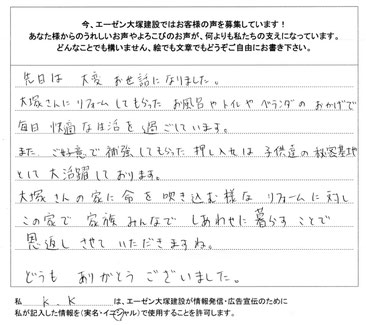 今、エーゼン大塚建設ではお客様の声を募集しています！
あなた様からのうれしいお声やよろこびのお声が、何よりも私たちの支えになっています。
どんなことでも構いません、絵でも文章でもどうぞご自由にお書き下さい。
先日は 大変 お世話になりました。
大塚さんにリフォームしてもらった お風呂やトイレやベランダの おかげで
毎日 快適な生活を 過ごしています。
また、ご好意で 補強してもらった 押し入れは 子供達の 秘密基地
として 大活躍しております。
大塚さんの家に命を吹き込む様な リフォームに対し
この家で 家族 みんなで しあわせに暮らすことで
恩返し させて いただきますね。
どうも ありがとう ございました。
私 K.K は、エーゼン大塚建設が情報発信・広告宣伝のために
私が記入した情報を（実名・イニシャル）で使用することを許可します。